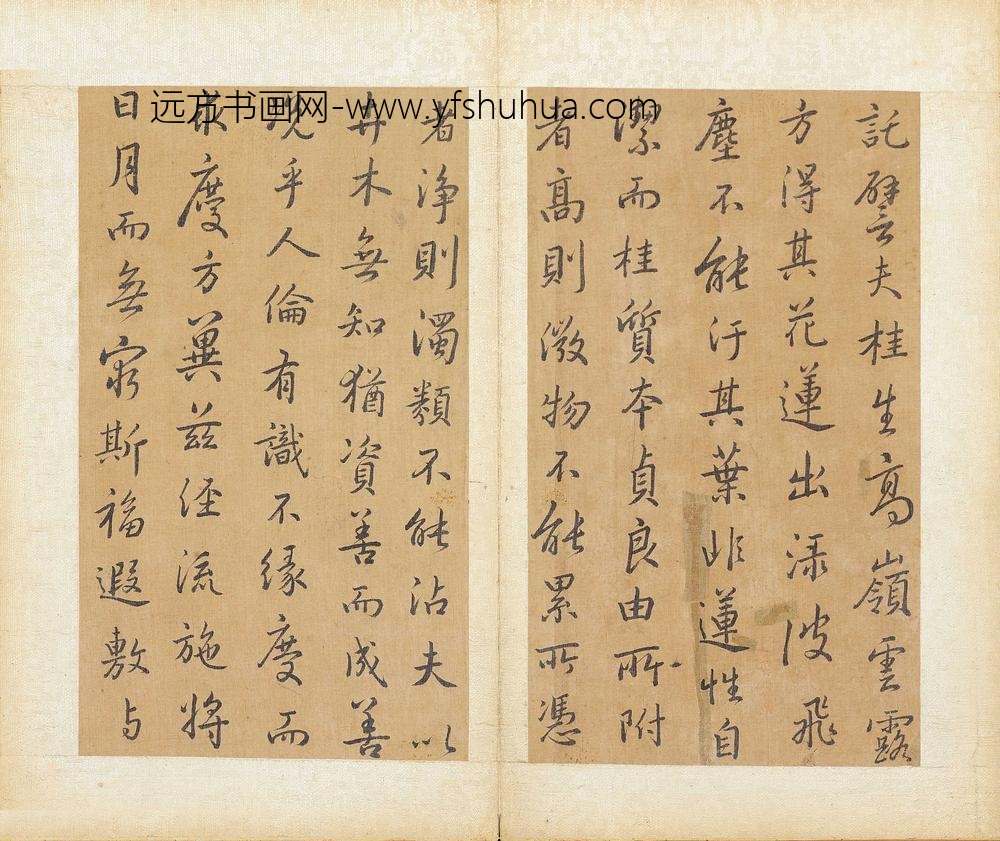 远方书画网-www.yfshuhua.com
託譬夫桂生高嶺雲露
方得其花蓮出淥波飛
塵不能汙其葉非蓮性自
潔而桂質本貞良由所附
者高則微物不能累所憑
者淨則濁類不能沾夫以
卉木無知猶資善而成善
況乎人倫有識不緣慶而
求慶方冀茲経流施將
日月而無窮斯福遐敷与